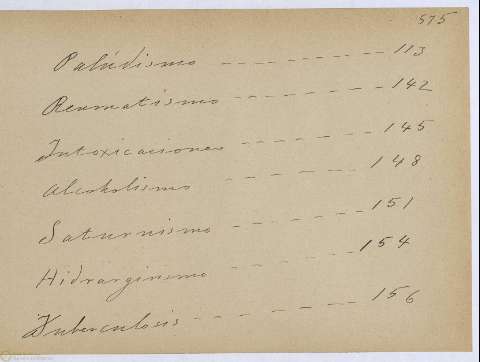 575
Palúdismo — — — — — 113
Reumatismo — — — — — 142
Intoxicaciones — — — — — 145
Alcoholismo — — — — — 148
Saturnismo — — — — — 151
Hidrargirismo — — — — — 154
Tuberculosis — — — — — 156